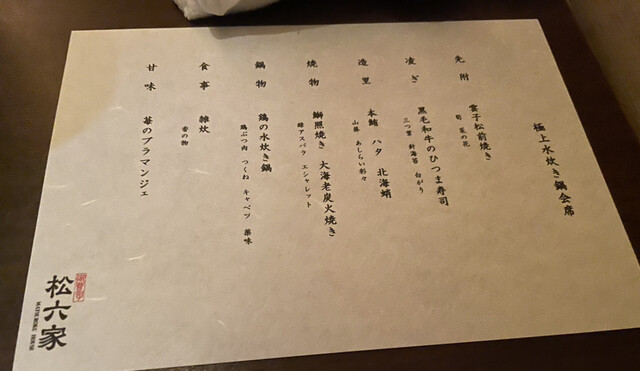 極上水炊き鍋会席
先附
雲子松前焼き
旬 菜の花
凌ぎ
黒毛和牛のひつま寿司
三つ葉 針海苔 白がり
造里
本鮪 ハタ 北海蛸
山葵 あしらい彩々
焼物
鰤照焼き 大海老炭火焼き
緑アスパラ エシャレット
鍋物
鶏の水炊き鍋
鶏ぶつ肉 つくね キャベツ 薬味
食事
雑炊
香の物
甘味
苺のブラマンジェ
松六家